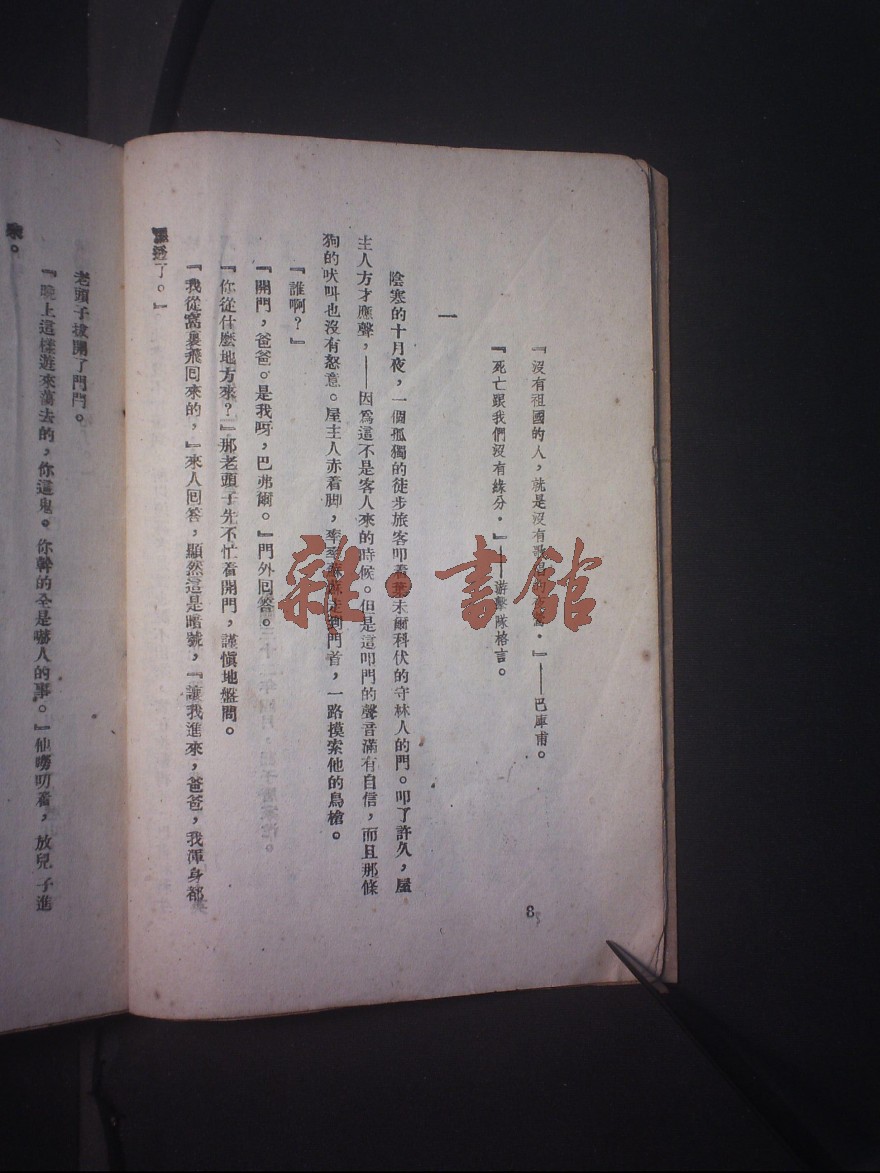 『沒有祖國的人，就是沒有歌唱的・』——巴庫甫。
『死亡跟我們沒有緣分・』——游擊隊格言。
一
陰寒的十月夜，一個孤獨的徒步旅客叩着葉未爾科伏的守林人的門。叩了許久，屋
主人方才應聲，——因爲這不是客人來的時候。但是這叩門的聲音滿有自信，而且那條
狗的吠叫也沒有怒意。屋主人赤着脚，走到門首，一路摸索他的鳥槍。
『誰啊？』
『開門，爸爸。是我呀，巴弗爾。』門外回答。
『你從什麼地方來？』那老頭子先不忙着開門，謹愼地盤問。
『我從窩裏飛回來的，』來人回答，顯然這是暗號，『讓我進來，爸爸，我渾身都
濕透了。』
8
老頭子拔開了門閂。
『晚上這樣遊來蕩去的，你這鬼。你幹的全是嚇人的事。』他嘮叨着，放兒子進
來。
雜・書館